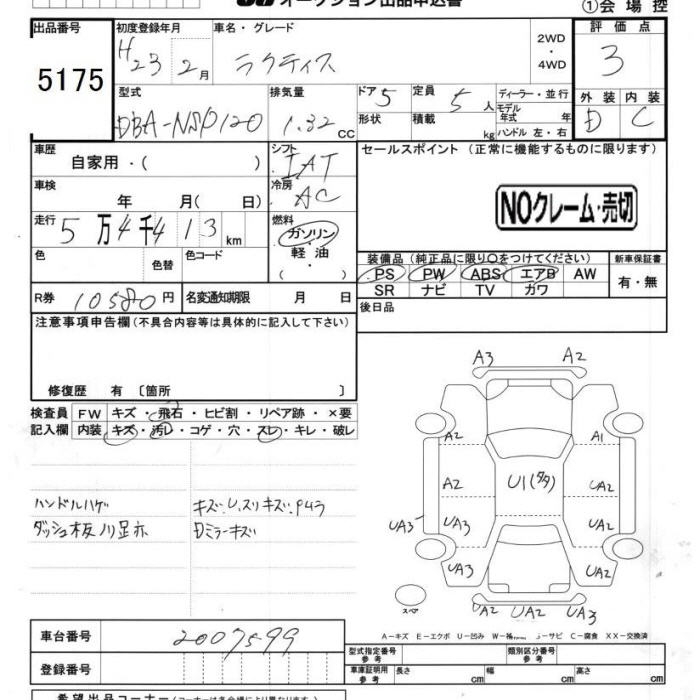 オークション出品申込書
①会場控
出品番号 初度登録年月 車名・グレード 2WD ・ 4WD 評価点
5175 H23 2月 ラクティス 3
型式 排気量 ドア 5 定員 5人 ディーラー・並行 外装 内装
DBA-NSP120 1.32 CC 形状 積載 kg モデル年式 年 ハンドル 左・右 D C
車歴 自家用・( ) シフト IAT セールスポイント (正常に機能するものに限ります)
車検 年 月( 日) 冷房 AC
NOクレーム・売切
走行 5万4千413km 燃料 ガソリン 軽油 ・( ・ )
色 色替 色コード
装備品 (純正品に限り○をつけてください) 新車保証書
PS PW ABS エアB AW 有・無
SR ナビ TV カワ
R券 10580円 名変通知期限 月 日 後日品
注意事項申告欄 (不具合内容等は具体的に記入して下さい)
修復歴 有 〔箇所 〕
検査員 FW キズ・飛石・ヒビ割・リペア跡・×要
記入欄 内装 キズ・汚レ・コゲ・穴・スレ・キレ・破レ
ハンドルハゲ
ダッシュ板
キズ、U、スリキズ
Dミラーキズ
A3 A2
A2 A1
A2 U1(タタ) UA2
UA3 UA3 UA2
UA3 UA2
UA2 UA2 UA3
スペア
A－キズ E－エクボ U－凹み C－腐食 XX－交換済
車台番号 2007599
登録番号
型式指定番号 参考 類別区分番号 参考
車庫証明用 参考 長さ cm 幅 cm 高さ cm
希望出品コーナー